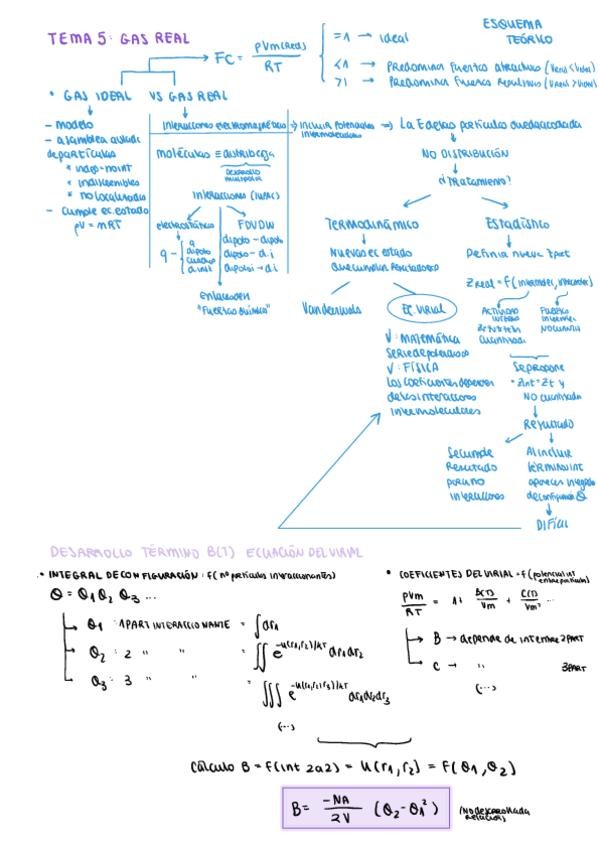 ESQUEMA
TEÓRICO
TEMA 5: GAS REAL
FC = pVm(real) / RT
= 1 → ideal
<1 → Predomina fuerzas atractivas (Vreal < Videal)
>1 → Predomina fuerzas repulsivas (Vreal > Videal)
• GAS IDEAL VS GAS REAL
– modelo
– asamblea aislada
de partículas
* indep = no int
* indiscernibles
* no localizadas
– cumple ec. estado
pV = nRT
interacciones electromagnéticas → incluir potenciales
intermoleculares
→ La E de las partículas queda acoplada
moléculas ≡ distrib carga
desarrollo
multipolar
interacciones (IUPAC)
electrostáticas
q –
q
dipolo
cuadrup
FDVDW
dipolo – dipolo
dipolo – d.i
dipolo i – d.i
enlace en
"Fuerzas químico"
NO DISTRIBUCIÓN
¿Tratamiento?
Termodinámico
Nuevas ec estado
que cumplan resultados
Van der Waals
Ec. virial
V: MATEMÁTICA
Serie de potencias
V: FÍSICA
Los coeficientes dependen
de las interacciones
intermoleculares
Estadístico
Definir nueva Zpart
Z real = f(intermolec, intramolec)
Se propone
• Zint = Zt y
NO cuantizada
Resultado
Se cumple
resultado
para no
interacciones
Al incluir
término int
aparece integral
de configuración Θ
DIFÍCIL
DESARROLLO TÉRMINO B(T) ECUACIÓN DEL VIRIAL
• INTEGRAL DE CONFIGURACIÓN: f(nº partículas interaccionantes)
Θ = Θ1 Θ2 Θ3 ...
Θ1 : 1 PART INTERACCIONANTE = ∫ dr1
Θ2 : 2 " " = ∬ e^(-u(r1,r2)/kT) dr1dr2
Θ3 : 3 " " = ∭ e^(-u(r1,r2,r3)/kT) dr1dr2dr3
(...)
• COEFICIENTES DEL VIRIAL = f(potencial int
entre partículas)
pVm / RT = 1 + B(T) / Vm + C(T) / Vm² ...
B → depende de int entre 2 PART
C → " 3 PART
(...)
Cálculo B = F(int 2 a 2) = u(r1, r2) = F(Θ1, Θ2)
B = -NA / 2V (Θ2 - Θ1²)
(No desarrollada
relación)